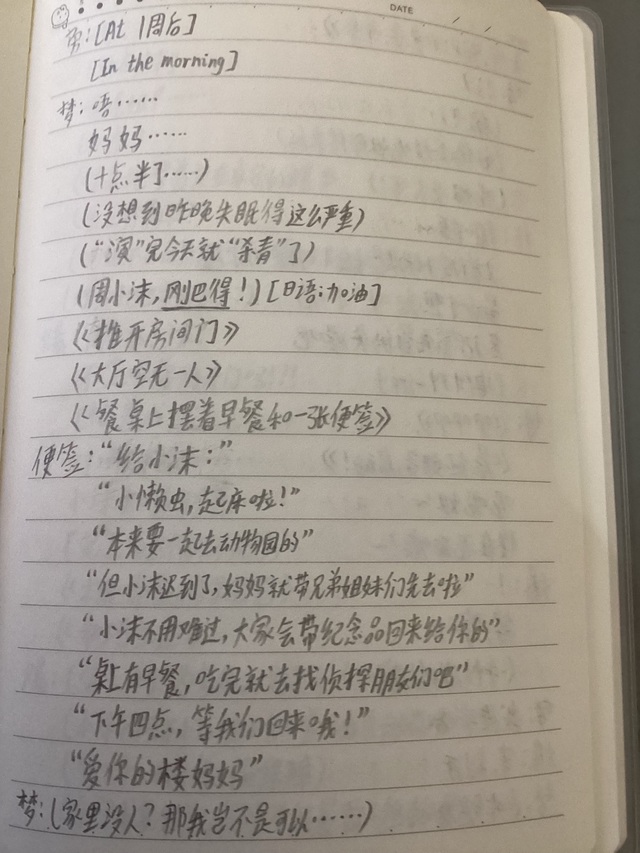 DATE / /
梦:[At 1周后]
[In the morning]
梦:唔……
妈妈……
(十点半了……)
(没想到昨晚失眠得这么严重)
(“演”完今天就“杀青”了)
(周小沫,刚巴得!)[日语:加油]
《推开房间门》
《大厅空无一人》
《餐桌上摆着早餐和一张便签》
便签:“给小沫:”
“小懒虫,起床啦!”
“本来要一起去动物园的”
“但小沫迟到了,妈妈就带兄弟姐妹们先去啦”
“小沫不用难过,大家会带纪念品回来给你的”
“桌上有早餐,吃完就去找侦探朋友们吧”
“下午四点,等我们回来哦!”
“爱你的楼妈妈”
梦:(家里没人?那我岂不是可以……)